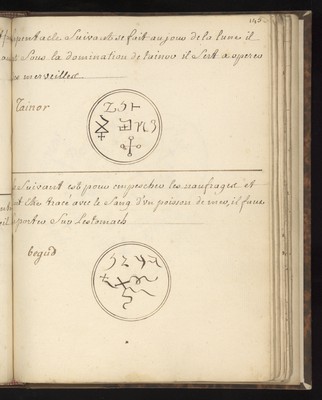 145.
pentacle Suivant se fait au jour de la lune il
Sous la domination de tainor il Sert a operer
merveilles
Tainor
Suivant est pour empescher les naufrages et
Estre tracé avec le Sang d'un poisson de mer, il faut
porter Sur l'estomach
begud